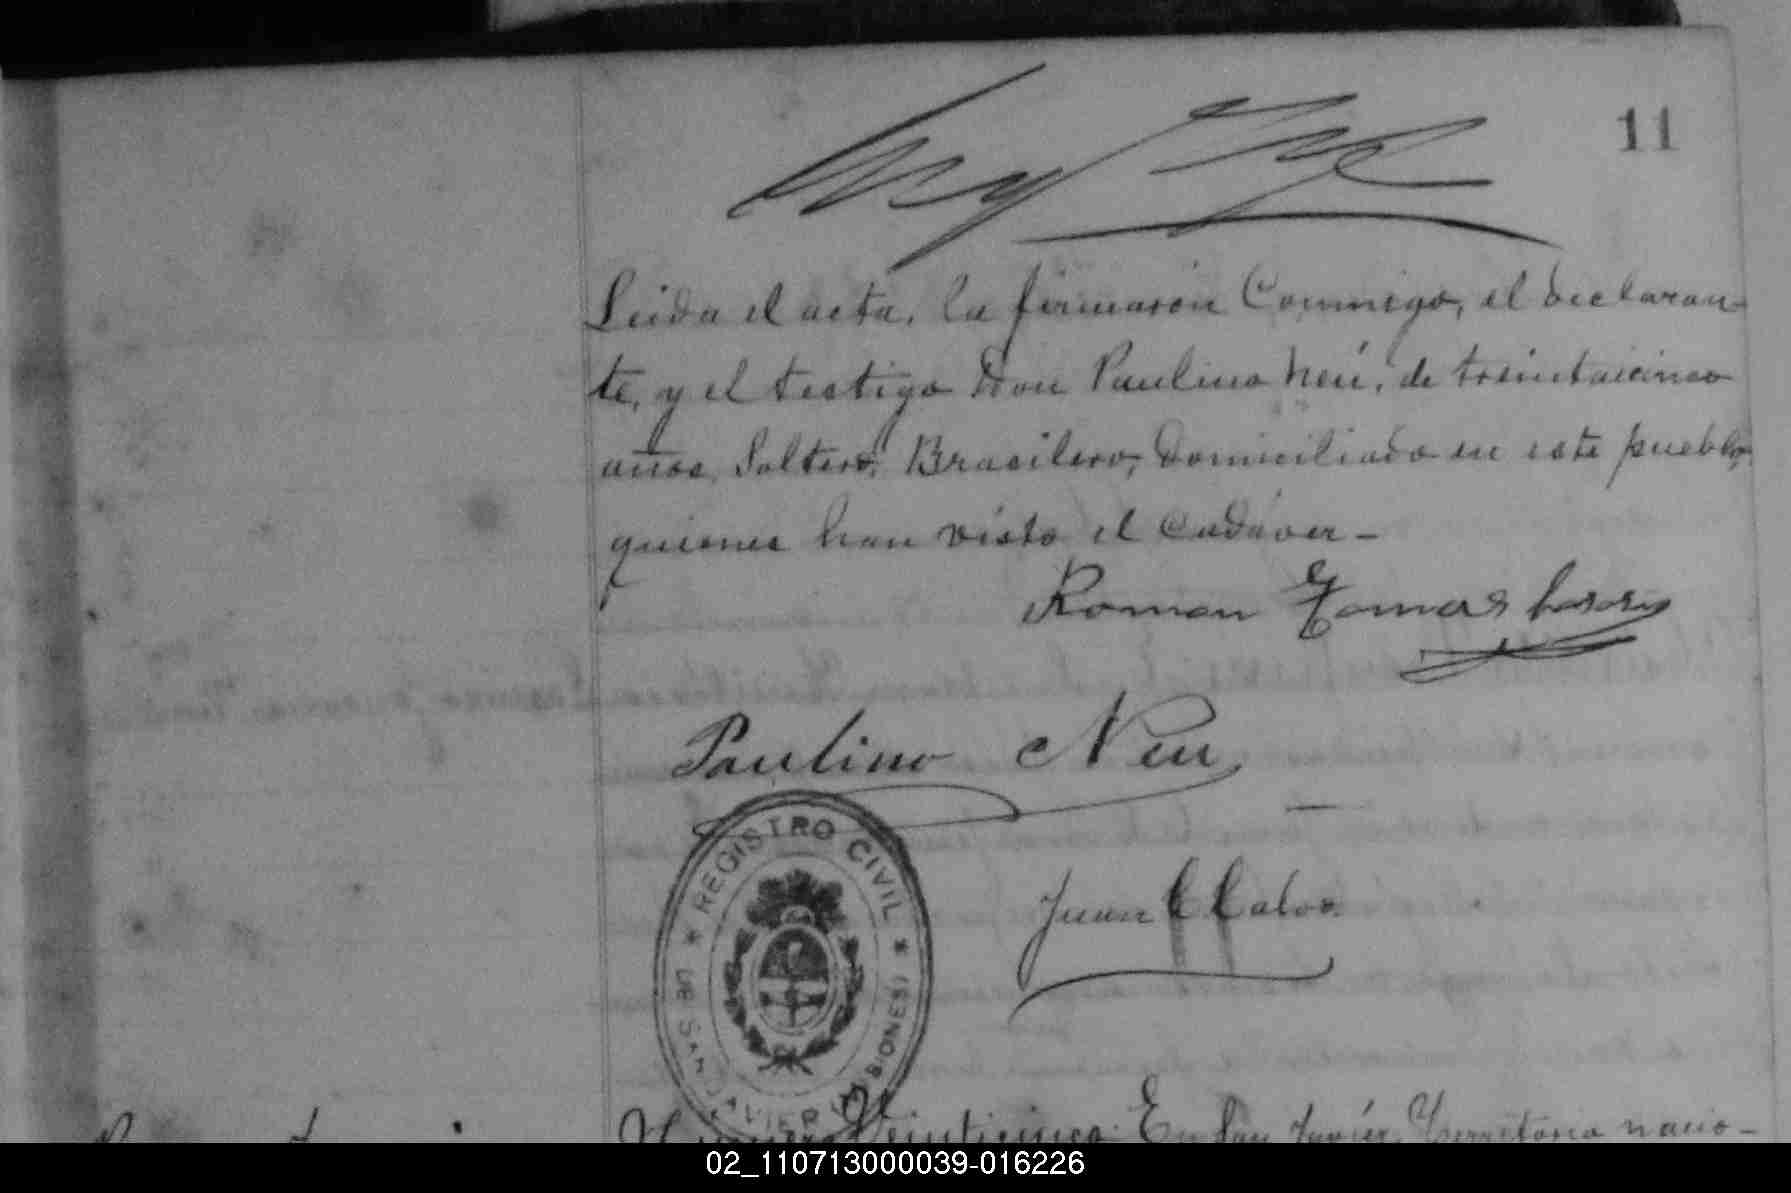 11
Leida el acta, la firmaron Conmigo, el declaran-
te, y el testigo Don Paulino Neú, de treintaicinco
años, Soltero, Brasilero, Domiciliado en este pueblo,
quienes han visto el Cadáver -
Roman Tomas
Paulino Neu
Juan Calvo
* REGISTRO CIVIL *
DE SAN JAVIER (MISIONES)
Numero Veinticinco. En San Javier, Territorio nacio-
02_110713000039-016226